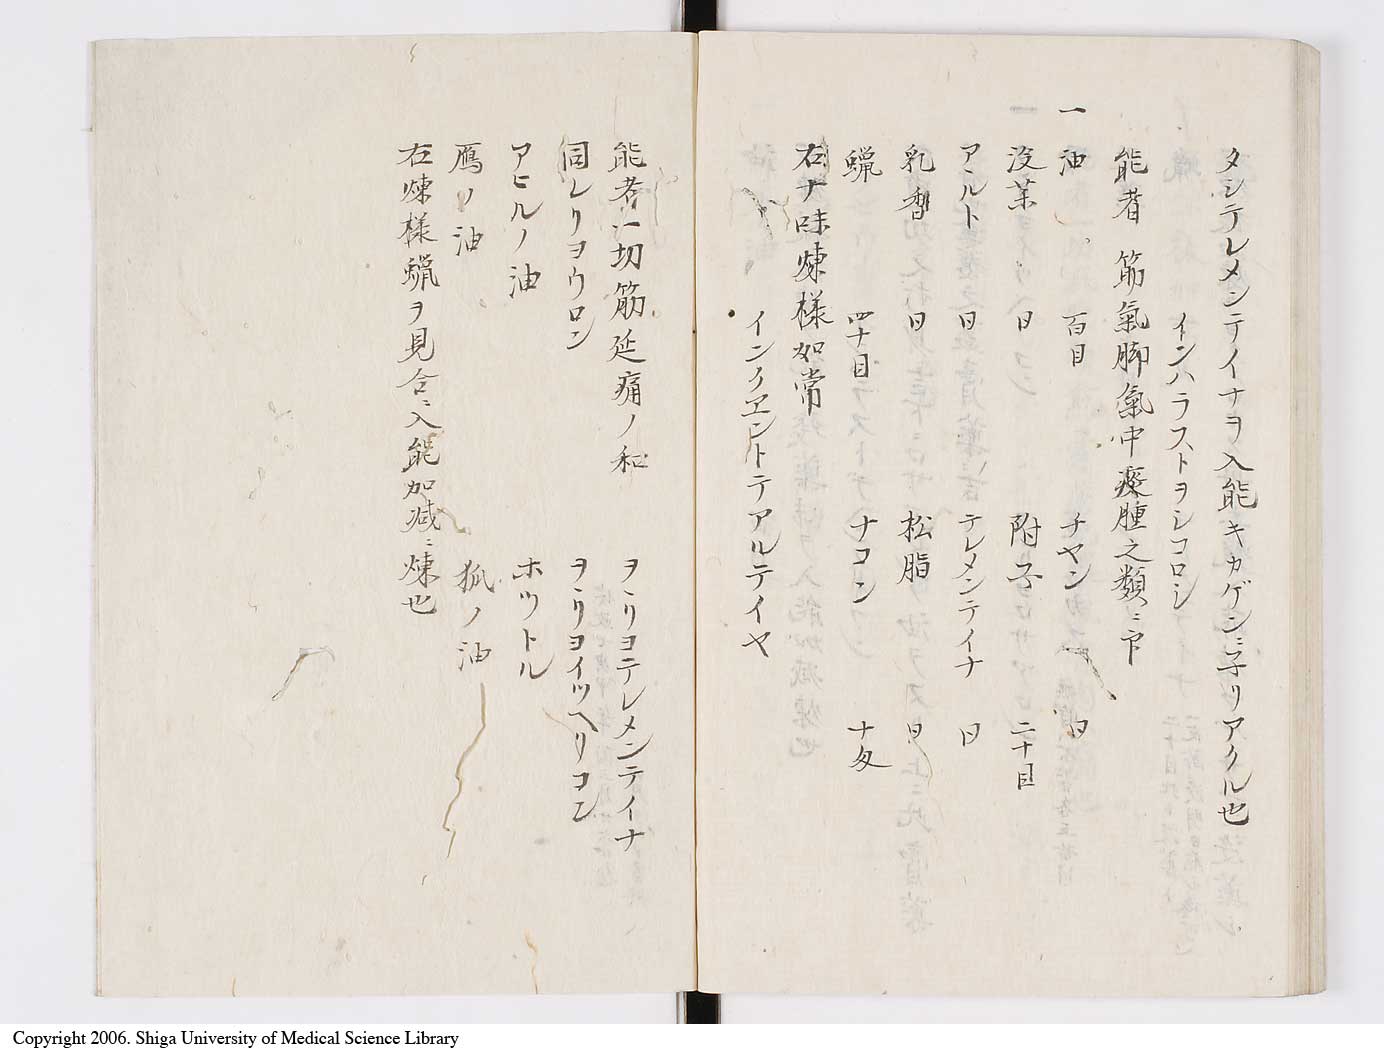 タシテレメンテイナヲ入能キカゲンニ子リアクル也
インハラストヲシコロシ
能者 筋氣脚氣中 瘀腫之類ニ吉
一 油 百目 チヤン 日
没薬 日 附子 二十目
アヽルト 日 テレメンテイナ 日
乳香 日 松脂 日
蝋 四十目 ナコン 十匁
右十味煉様如常
インクエントテアルテイヤ
能者一切筋延痛ノ和 ヲヽリヨテレメンテイナ
同レリヨウロン ヲヽリヨイツヘリコン
アヒルノ油 ホツトル
鴈ノ油 狐ノ油
右煉様蝋ヲ見合ニ入能加减ニ煉也
Copyright 2006. Shiga University of Medical Science Library